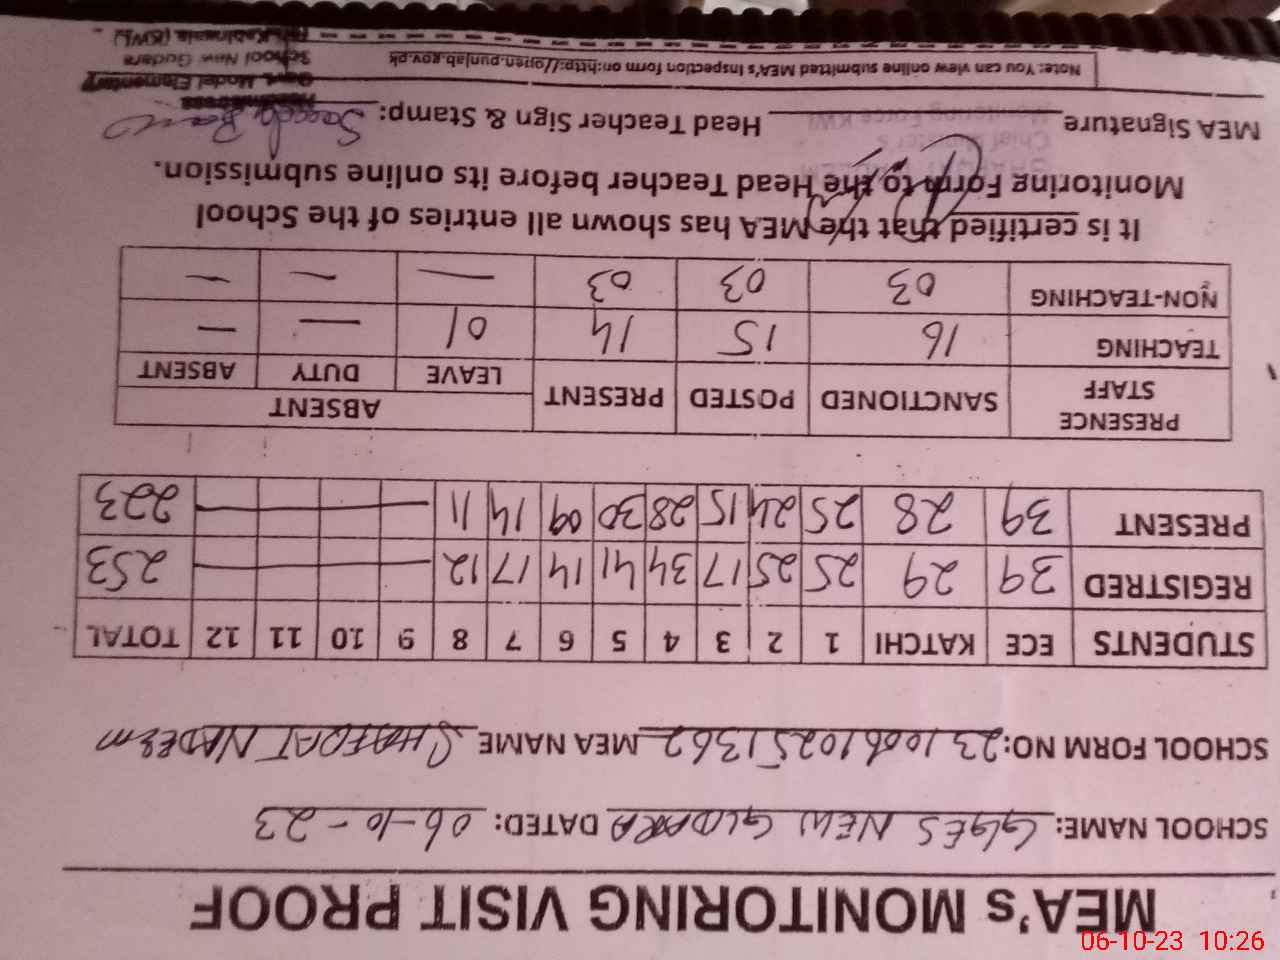 MEA's MONITORING VISIT PROOF
SCHOOL NAME: GGES NEW GUDARA DATED: 06-10-23
SCHOOL FORM NO: 231006 10251362 MEA NAME SHAFQAT NADEEM
STUDENTS ECE KATCHI 1 2 3 4 5 6 7 8 9 10 11 12 TOTAL
REGISTRED 39 29 25 25 17 34 41 14 17 12 253
PRESENT 39 28 25 24 15 28 30 09 14 11 223
PRESENCE STAFF SANCTIONED POSTED PRESENT ABSENT
LEAVE DUTY ABSENT
TEACHING 16 15 14 01 — —
NON-TEACHING 03 03 03 — — —
It is certified that the MEA has shown all entries of the School
Monitoring Form to the Head Teacher before its online submission.
MEA Signature Head Teacher Sign & Stamp:
Chief Minister's
Monitoring Force KWL
Govt. Model Elementary
School New Gudara
Note: You can view online submitted MEA's inspection form on:http://open.punjab.gov.pk
06-10-23 10:26